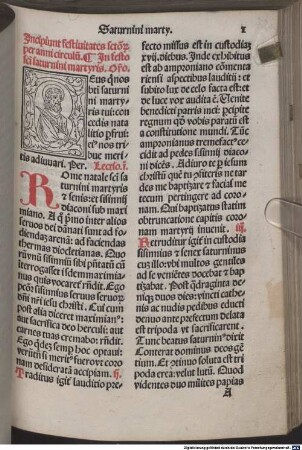 Saturnini marty. I
Incipiunt festiuitates sctõꝝ
per anni circulū. ¶ In festo
sci saturnini martyris. Oro.
Eus q̇ nos
bti saturni
ni marty-
ris tui: con
cedis nata
litio ꝑfrui:
eiꝰ nos tri-
bue meri-
tis adiuuari. Per. Lectio .i.
Rome natale sci sa
turnini martyris
⁊ senis: et sisinnij
diaconi sub maxi
miano. A q̊ imo inter alios
seruos dei dānati sunt ad fo-
diendaȝ arenā: ad faciendas
thermas diocletianas. Nuō
rāuinū sisinniū sibi p̄ntatū cū
interrogasset: ꝙ idem maximia
nus quis vocaret͛ rn̄dit. Ego
peccō sisinnius seruus seruoꝝ
dn̄i nr̄i iesu christi. Cui cum
post alia diceret maximianꝰ:
aut sacrifica deo herculi: aut
carnes tuas cremabo: rn̄dit.
Ego qͥdez semꝑ hoc optaui:
Traditus igit͛ lauditio pre-
fecto missus est in custodiaȝ
xvij. diebus. Inde exhibitus
est ab amproniano cōmenta
riensi aspectibus lauditij: et
subito lux de celo facta est: et
de luce vox audita ē. Venite
benedicti patris mei: ꝑcipite
regnum qd̓ vobis paratū est
a constitutione mundi. Tūc
ampronianus tremefactꝰ ce-
cidit ad pedes sisinnij diaco
ni dicēs. Adiuro te ꝑ iesum
christū quē tu ꝓfiteris: ne tar
des me baptiȝare: ⁊ facial me
tecum pertingere ad coro-
nam. Qui baptiȝatus statim
obtruncatione capitis coro-
nam martyrij inuenit. iij.
Retruditur igit͛ in custodia
sisinnius ⁊ senex saturninus
cuȝ illoꝝ bi multos gentiles
ad se veniētes docebat ⁊ bap
tiȝabat. Post qͥdraginta de-
niqȝ duos dies: vincti cathe-
nis ac nudis pedibus educti
denuo ante prefectum: delata
est tripoda vt sacrificarent.
Tunc beatus saturninꝰ dixit
Conterat dominus deos gē
tium. Et ꝓtinus soluta est tri
poda erea: velut lutū. Quod
videntes duo milites papias
A